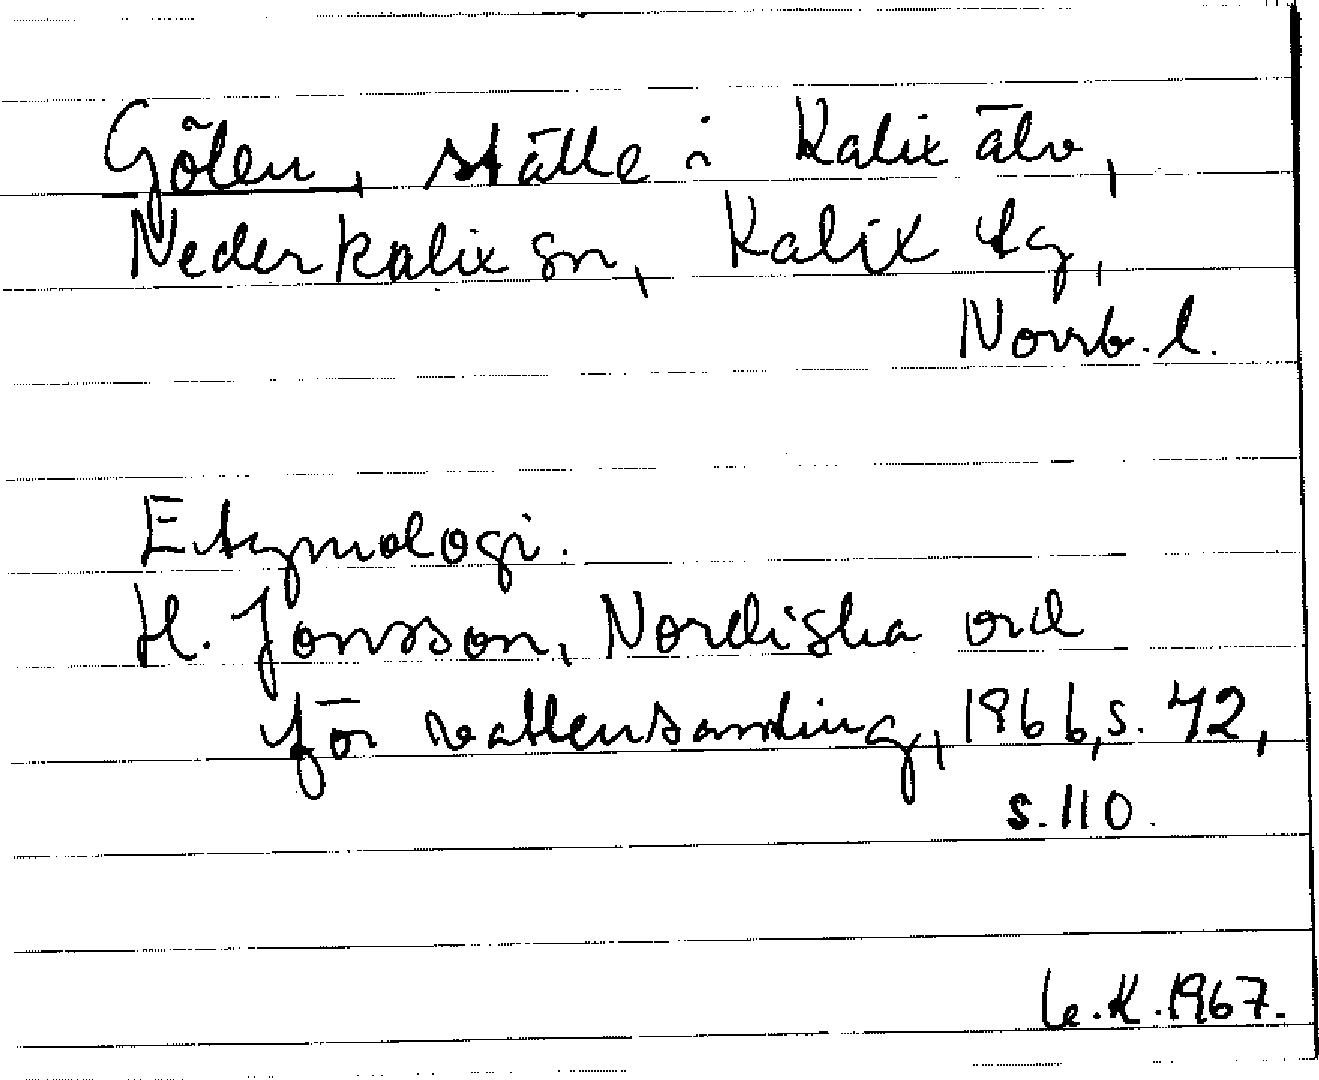 Gölen, ställe i Kalix älv,
Nederkalix sn, Kalix tg,
Norrb. l.
Etymologi.
H. Jonsson, Nordiska ord
för vattensamling, 1966, s. 42,
s. 110.
Le.K. 1967.